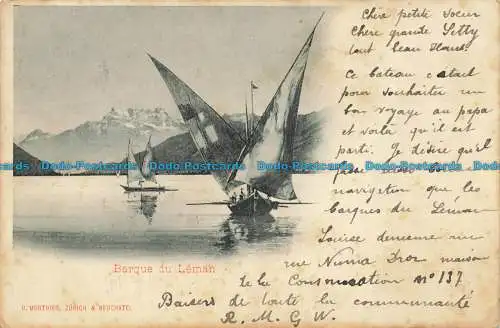 Chère petite soeur
Chère grande Setty
tout beau Hans
Ce bateau c'etait
pour souhaiter un
bon voyage au papa
et voilà qu'il est
parti. Je désire qu'il
navigation que les
barques du Léman
Louise demeure
rue Numa Droz maison
de la Consommation No 137
Baisers de toute la communauté
R. M. G. W.
Barque du Léman
MONTHIER, ZÜRICH & NEUCHATEL
Dodo-Postcards.info Dodo-Postcards.info Dodo-Postcards.info Dodo-Postcards.info